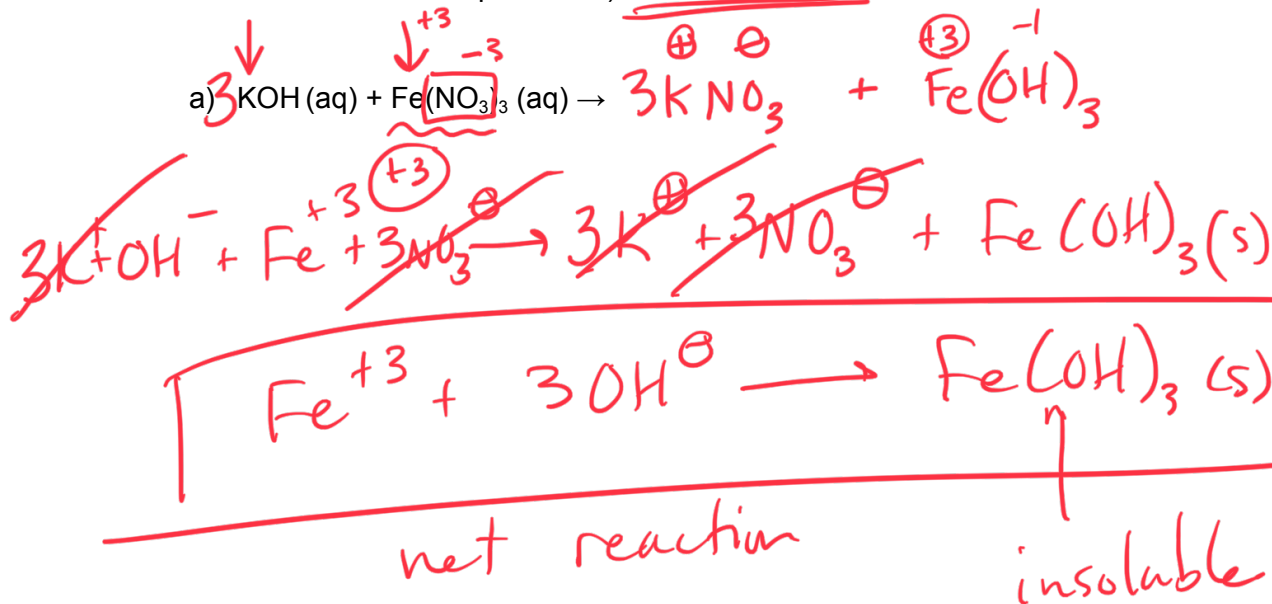 +3 -3 ⊕ ⊖ +3 -1
a) 3KOH (aq) + Fe(NO₃)₃ (aq) → 3KNO₃ + Fe(OH)₃
3K⁺ + OH⁻ + Fe⁺³ +3 + 3NO₃⊖ → 3K⊕ + 3NO₃⊖ + Fe(OH)₃(s)
Fe⁺³ + 3OH⊖ → Fe(OH)₃ (s)
net reaction insoluble